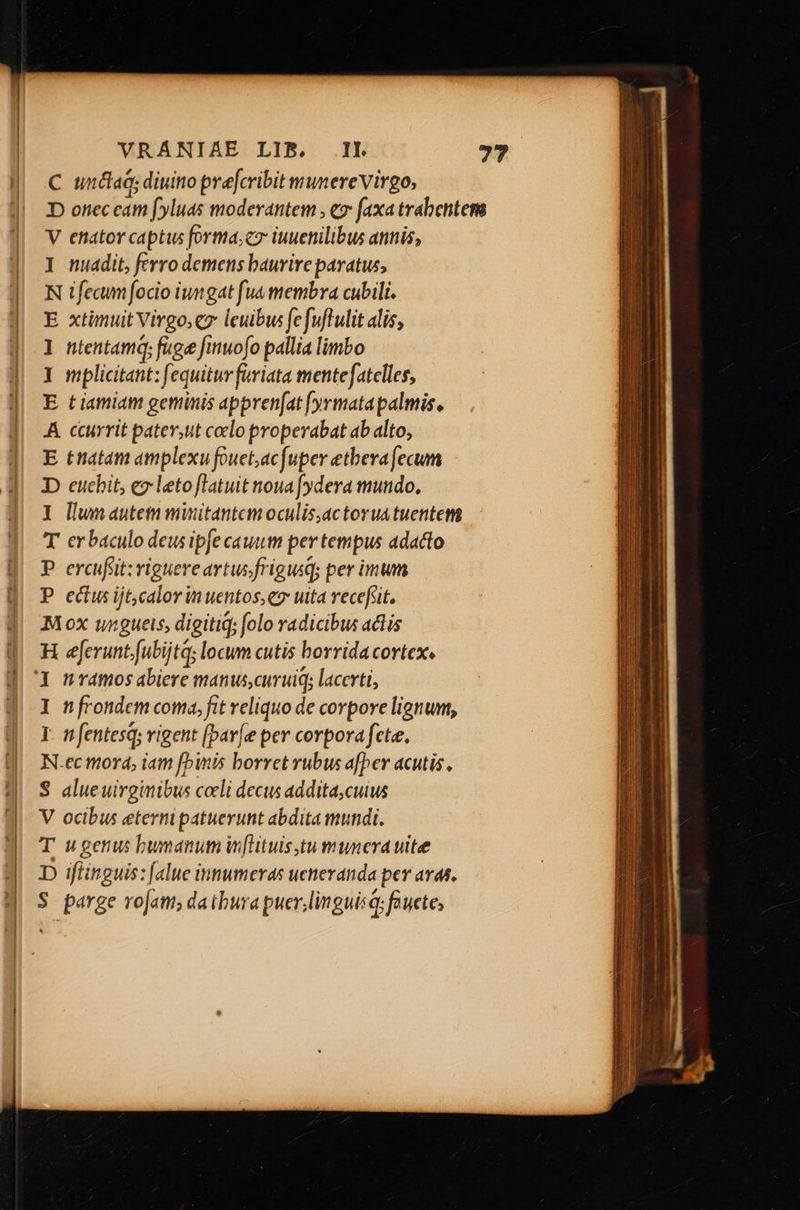 VRANIAE LIB. II. 77
C unctaq; diuino præſcribit munere Virgo,
D onec eam ſyluas moderantem, & ſaxa trahentem
V enator captus forma, & iuuenilibus annis,
I nuadit, ferro demens haurire paratus,
N i ſecum ſocio iungat ſua membra cubili.
E xtimuit Virgo, & leuibus ſe ſuſtulit alis,
I ntentamq; fugæ ſinuoſo pallia limbo
I mplicitant: ſequitur furiata mente ſatelles,
E t iamiam geminis apprenſat ſyrmata palmis.
A ccurrit pater, ut cœlo properabat ab alto,
E t natam amplexu fouet, ac ſuper æthera ſecum
D euehit, & leto ſtatuit noua ſydera mundo.
I llum autem minitantem oculis, ac torua tuentem
T er baculo deus ipſe cauum per tempus adacto
P ercuſsit: riguere artus, frigusq; per imum
P ectus ijt, calor in uentos, & uita receſsit.
Mox ungueis, digitiq; ſolo radicibus actis
H æſerunt, ſubijtq; locum cutis horrida cortex.
I n ramos abiere manus, curuiq; lacerti,
I n frondem coma, fit reliquo de corpore lignum,
I n ſentesq; rigent ſparſæ per corpora ſetæ.
N ec mora, iam ſpinis horret rubus aſper acutis.
S alue uirginibus cœli decus addita, cuius
V ocibus æterni patuerunt abdita mundi.
T u genus humanum inſtituis, tu munera uitæ
D iſtinguis: ſalue innumeras ueneranda per aras.
S parge roſam, da thura puer, linguisq; fauete,